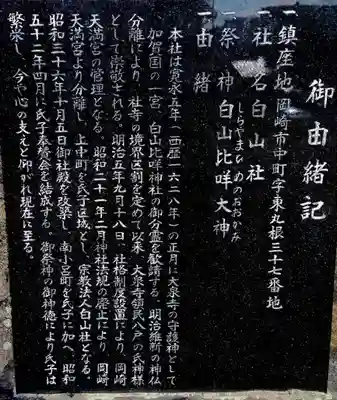 御由緒記
一鎮座地 岡崎市中町字東丸根三十七番地
一社名 白山社
しらやまひめのおおかみ
一祭神 白山比咩大神
一由緒
本社は寛永五年(西歴一六二八年)の正月に大泉寺の守護神として
加賀国の一宮、白山比咩神社の御分霊を歓請する。明治維新の神仏
分離により、社寺の境界区劃を定めて以来、大泉寺朝民八戸の氏神様
として崇敬される。明治五年九月十八日、社格制度設置により、岡崎
天満宮の管理となる。昭和二十一年二月神社法規の廃止により、岡崎
天満宮より分離し、上中町を氏子区域とし、宗教法人白山社となる。
昭和三十六年十月五日御社殿を改築し、南小呂町を氏子に加へ、昭和
五十二年四月に氏子奉賛会を結成する。御祭神の御神徳により氏子は
繁栄し、今や心の支えと仰がれ現在に至る。